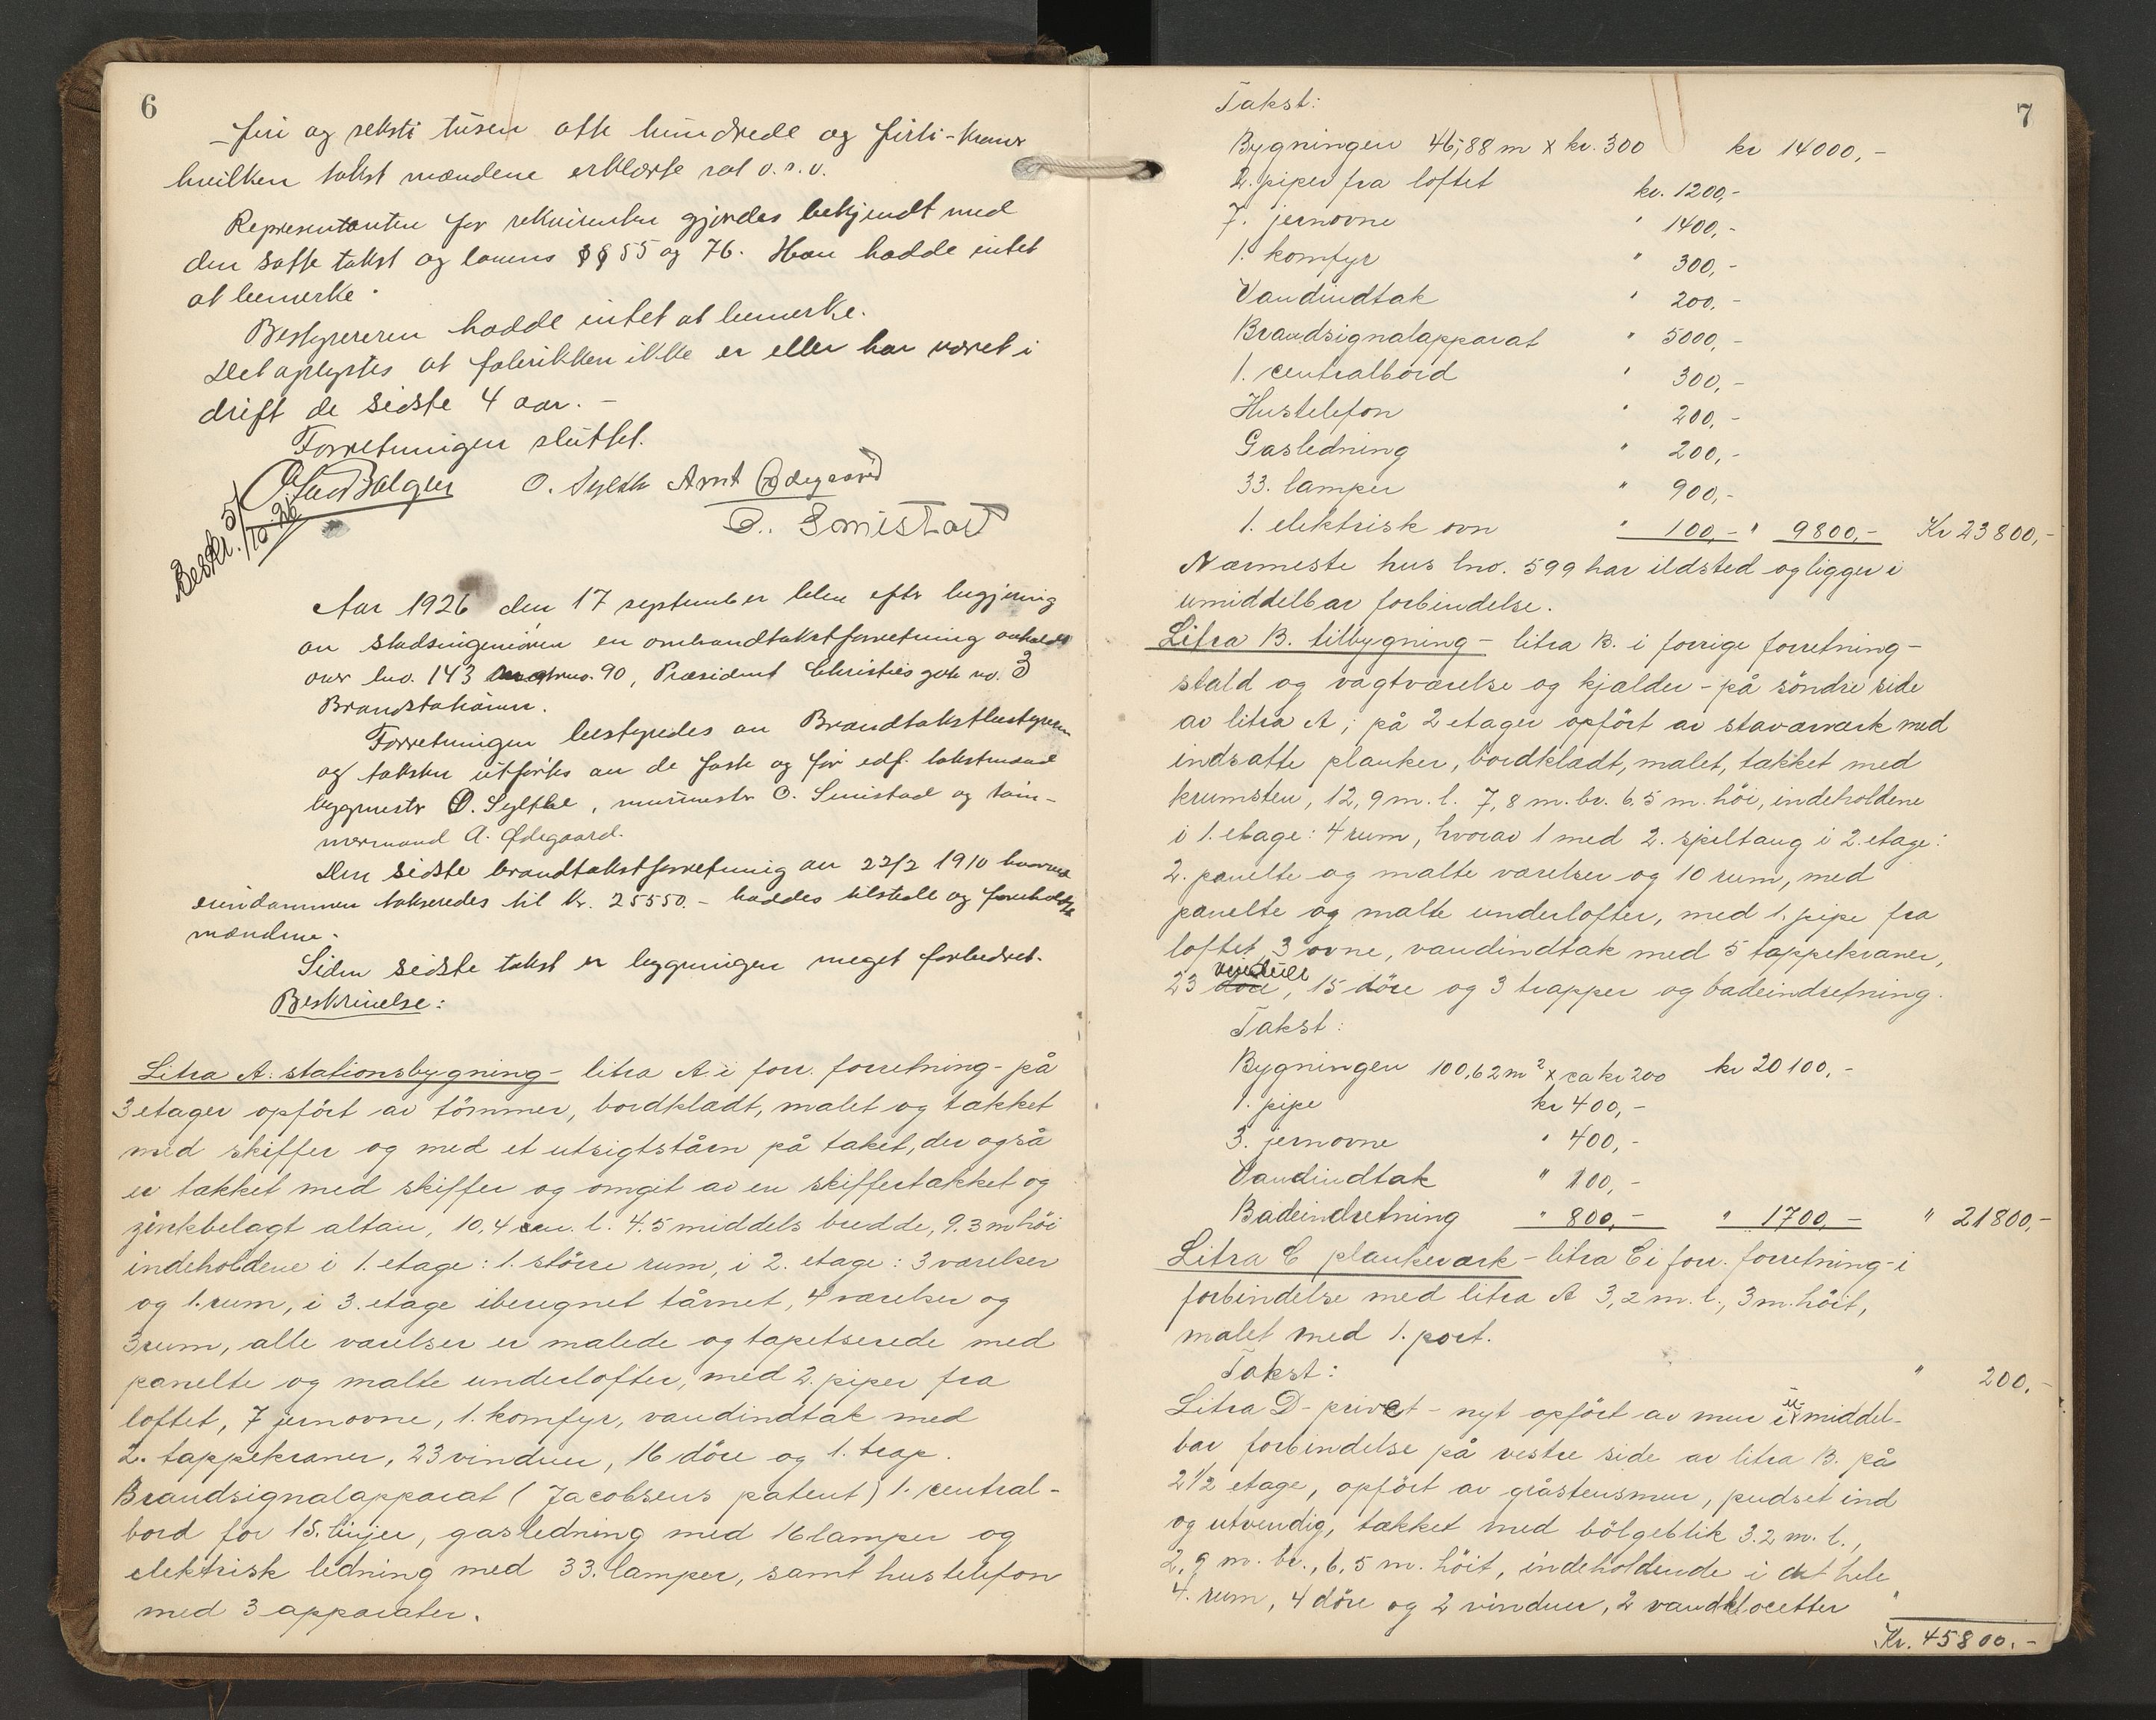 6
firi og seksti tusen otte hundrede og firti - kroner
hvilken takst mændene erklærte ret o.s.v.
Representanten for rekvirenten gjordes bekjendt med
den satte takst og lovens §§ 55 og 76. Han hadde intet
at bemerke.
Bestyreren hadde intet at bemerke.
Det oplystes at fabrikken ikke er eller har været i
drift de sidste 4 aar. -
Forretningen sluttet.
O. Sylthe Arnt Ødegaard
O. Smistad
Beskr. 5/10-26
Aar 1926 den 17 september blev efter begjæring
av stadsingeniøren en ombrandtakstforretning avholdt
over bno. 143 matrno. 90, Præsident Christies gate no. 3
Brandstationen.
Forretningen bestyredes av Brandtakstbestyreren
og taksten utførtes av de faste og før edf. takstmænd
bygmester O. Sylthe, murmester O. Smistad og tøm-
mermand A. Ødegaard.
Den sidste brandtakstforretning av 22/2 1910 hvorved
eiendommen takseredes til kr. 25550. - haddes tilstede og foreholdtes
mændene.
Siden sidste takst er bygningen meget forbedret.
Beskrivelse:
Litra A. stationsbygning - litra A i forr. forretning - på
3 etager opført av tömmer, bordklædt, malet og tækket
med skiffer og med et utsigtstårn på taket, der også
er tækket med skiffer og omgit av en skiffertækket og
zinkbelagt altan, 10,4 m. l. 4.5 middels bredde, 9.3 m høi
indeholdene i 1. etage: 1. större rum, i 2. etage: 3 værelser
og 1. rum, i 3. etage iberegnet tårnet, 4 værelser og
3 rum, alle værelser er malede og tapetserede med
panelte og malte underlofter, med 2. piper fra
loftet, 7 jernovne, 1. komfyr, vandindtak med
2. tappekraner, 23 vinduer, 16 döre og 1. trap.
Brandsignalapparat (Jacobsens patent) 1. central-
bord for 15. linjer, gasledning med 16 lamper og
elektrisk ledning med 33. lamper, samt hustelefon
med 3 apparater.
7
Takst:
Bygningen 46,88 m x kr. 300 kr 14000,-
2. piper fra loftet kr. 1200,-
7. jernovne " 1400,-
1. komfyr " 300,-
Vandindtak " 200,-
Brandsignalapparat " 5000,-
1. centralbord " 300,-
Hustelefon " 200,-
Gasledning " 200,-
33. lamper " 900,-
1. elektrisk ovn " 100,- " 9800,- Kr 23800,-
Nærmeste hus bno. 599 har ildsted og ligger i
umiddelbar forbindelse.
Litra B. tilbygning - litra B. i forrige forretning -
stald og vagtværelse og kjælder - på söndre side
av litra A; på 2 etager opfört av staværværk med
indsatte planker, bordklædt, malet, tækket med
krumsten, 12,9 m. l. 7,8 m. br. 6.5 m. höi, indeholdene
i 1. etage: 4 rum, hvorav 1 med 2. spiltaug i 2. etage:
2. panelte og malte værelser og 10 rum, med
panelte og malte underlofter, med 1. pipe fra
loftet 3 ovne, vandindtak med 5 tappekraner,
23 döre vinduer, 15 döre og 3 trapper og badeindretning.
Takst:
Bygningen 100,62 m² x ca kr 200 kr 20100,-
1. pipe kr 400,-
3. jernovne " 400,-
Vandindtak " 100,-
Badeindretning " 800,- " 1700,- " 21800,-
Litra C plankeværk - litra C i forr. forretning - i
forbindelse med litra A 3,2 m. l., 3 m. höit,
malet med 1. port.
Takst: " 200.-
Litra D - privet - nyt opfört av mur i umiddel-
bar forbindelse på vestre side av litra B. på
2 1/2 etage, opfört av gråstensmur, pudset ind
og utvendig, tækket med bölgeblik 3.2 m. l.,
2,9 m. br., 6,5 m. höit, indeholdende i det hele
4. rum, 4 döre og 2 vinduer, 2 vandklocetter "
Kr. 45800.-